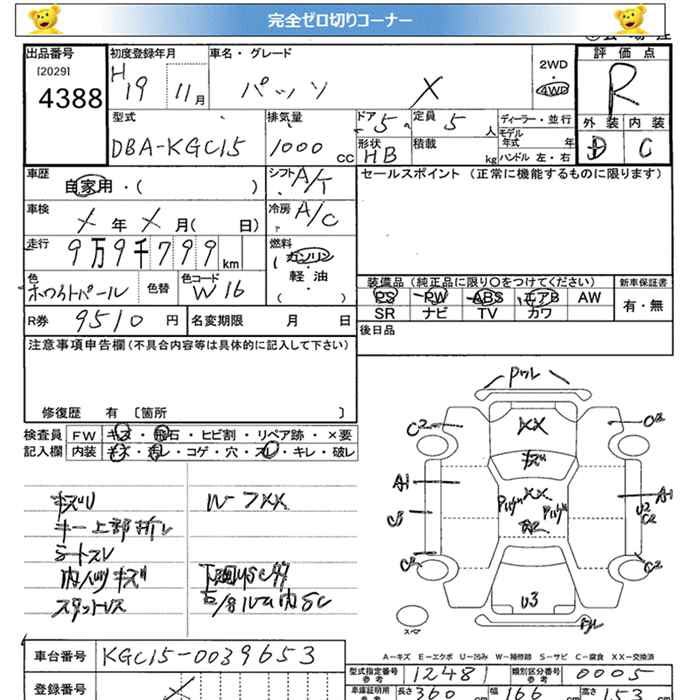 完全ゼロ切りコーナー
出品番号 初度登録年月 車名・グレード 2WD・4WD 評価点
[2029]
4388
H19 11月 パッソ X
R
外装 内装
D C
型式 排気量 ドア 5 定員 5 人 ディーラー・並行
DBA-KGC15 1000 CC 形状 HB 積載 kg モデル年式 年
ハンドル 左・右
車歴 自家用・( ) シフト A/T セールスポイント (正常に機能するものに限ります)
車検 X 年 X 月( 日) 冷房 A/C
走行 9万9千799 km 燃料 ガソリン
軽・油
( )
色 ホワイトパール 色替 色コード W16
装備品 (純正品に限り〇をつけてください) 新車保証書
PS PW ABS エアB AW 有・無
SR ナビ TV カワ
R券 9510 円 名変期限 月 日 後日品
注意事項申告欄 (不具合内容等は具体的に記入して下さい)
修復歴 有 〔箇所 〕
検査員 FW キズ・飛石・ヒビ割・リペア跡・×要
記入欄 内装 キズ・汚レ・コゲ・穴・スレ・キレ・破レ
キズU W-7XX
キー上部折レ
シートスレ
内人ツキズ
スタットレス
C2 XX C2
キズ
A1 XX A1
U2
C2
C2 C2
U3
スペア
A-キズ E-エクボ U-凹み W-補修跡 S-サビ C-腐食 XX-交換済
車台番号 KGC15-0039653
型式指定番号 参考 12481 類別区分番号 参考 0005
登録番号
車庫証明用 参考 長さ 360 cm 幅 166 cm 高さ 153 cm